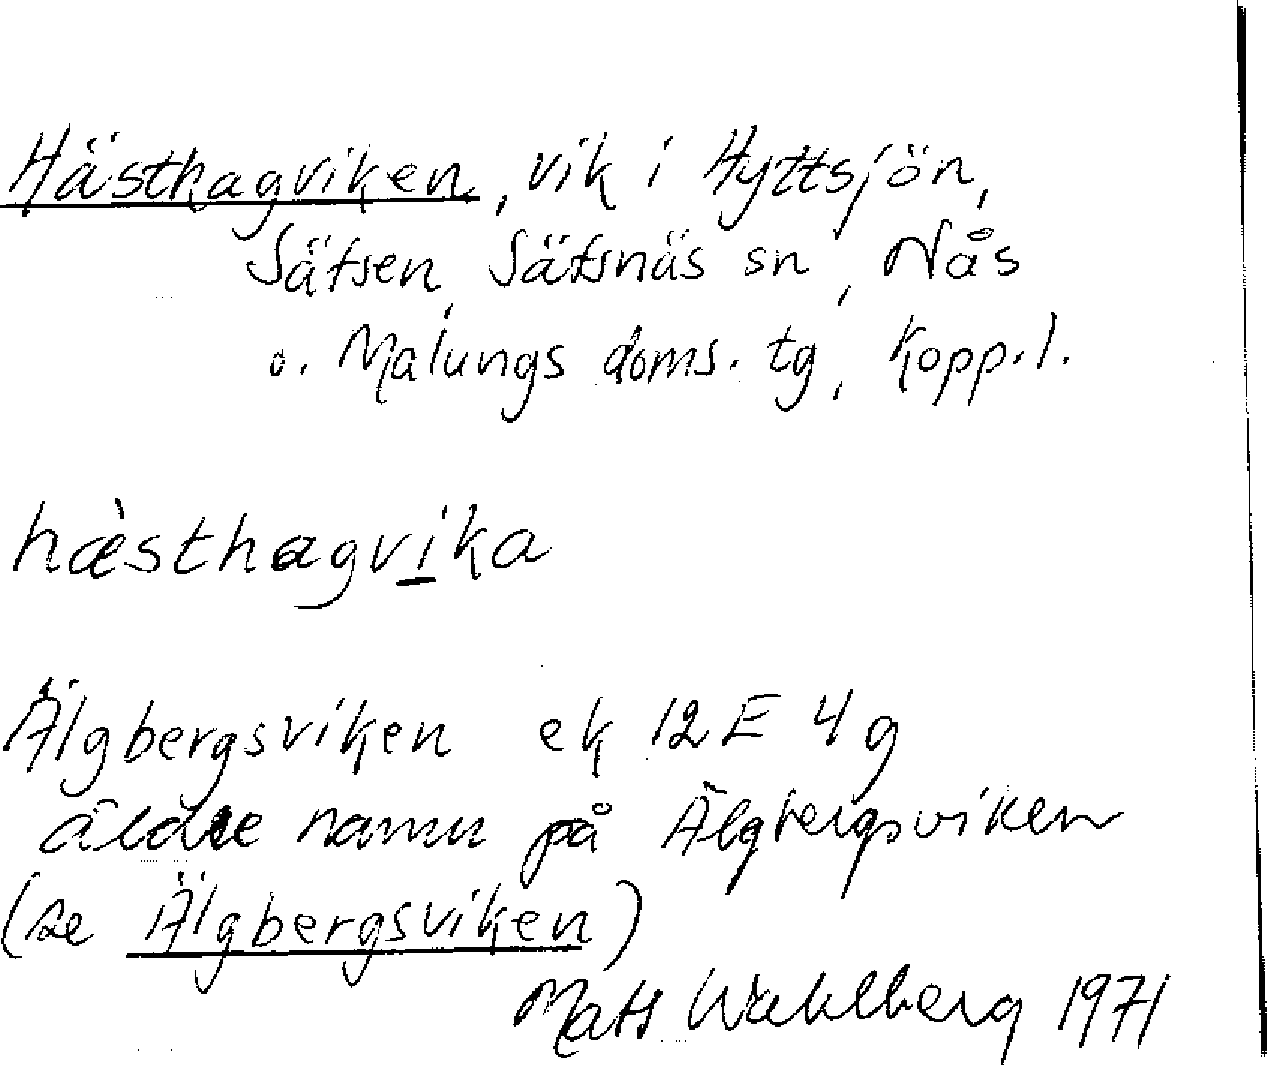 Hästhagviken, vik i Hyttsjön,
Sätsen, Sätsnäs sn, Nås
o. Malungs doms. tg, Kopp.l.
hæ̀sthagvika
Älgbergsviken ek 12E 4g
äldre namn på Älgbergsviken
(se Älgbergsviken)
Mats Wahlberg 1971